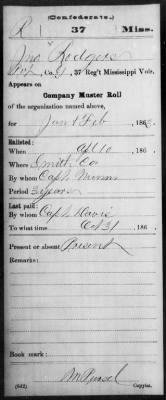 (Confederate.)
R 37 Miss.
Jno Rodgers
Co. , 37 Reg't Mississippi Vols.
Appears on
Company Muster Roll
of the organization named above,
for Jan & Feb , 186
Enlisted:
When , 186
Where Smith Co
By whom Capt.
Period 3 years
Last paid:
By whom Capt Davis
To what time Oct 31 , 186
Present or absent Present
Remarks:
Book mark:
(642) Copyist.